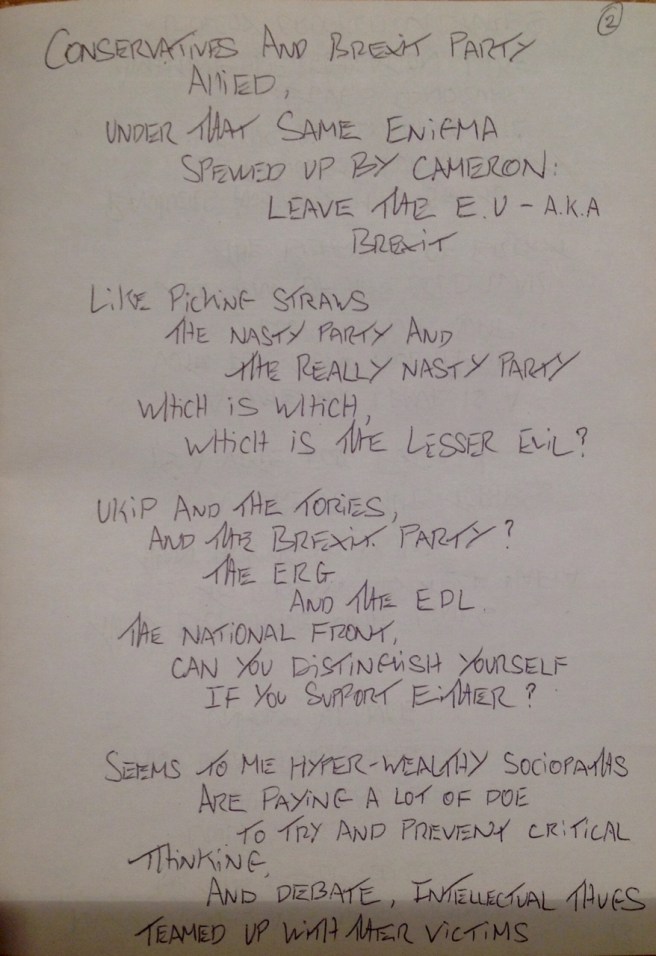 2
CONSERVATIVES AND BREXIT PARTY
ALLIED,
UNDER THAT SAME ENIGMA
SPEWED UP BY CAMERON:
LEAVE THE E.U - A.K.A
BREXIT
LIKE PICKING STRAWS
THE NASTY PARTY AND
THE REALLY NASTY PARTY
WHICH IS WHICH,
WHICH IS THE LESSER EVIL?
UKIP AND THE TORIES,
AND THE BREXIT PARTY?
THE ERG
AND THE EDL.
THE NATIONAL FRONT,
CAN YOU DISTINGUISH YOURSELF
IF YOU SUPPORT EITHER?
SEEMS TO ME HYPER-WEALTHY SOCIOPATHS
ARE PAYING A LOT OF DOE
TO TRY AND PREVENT CRITICAL
THINKING,
AND DEBATE, INTELLECTUAL THUGS
TEAMED UP WITH THER VICTIMS